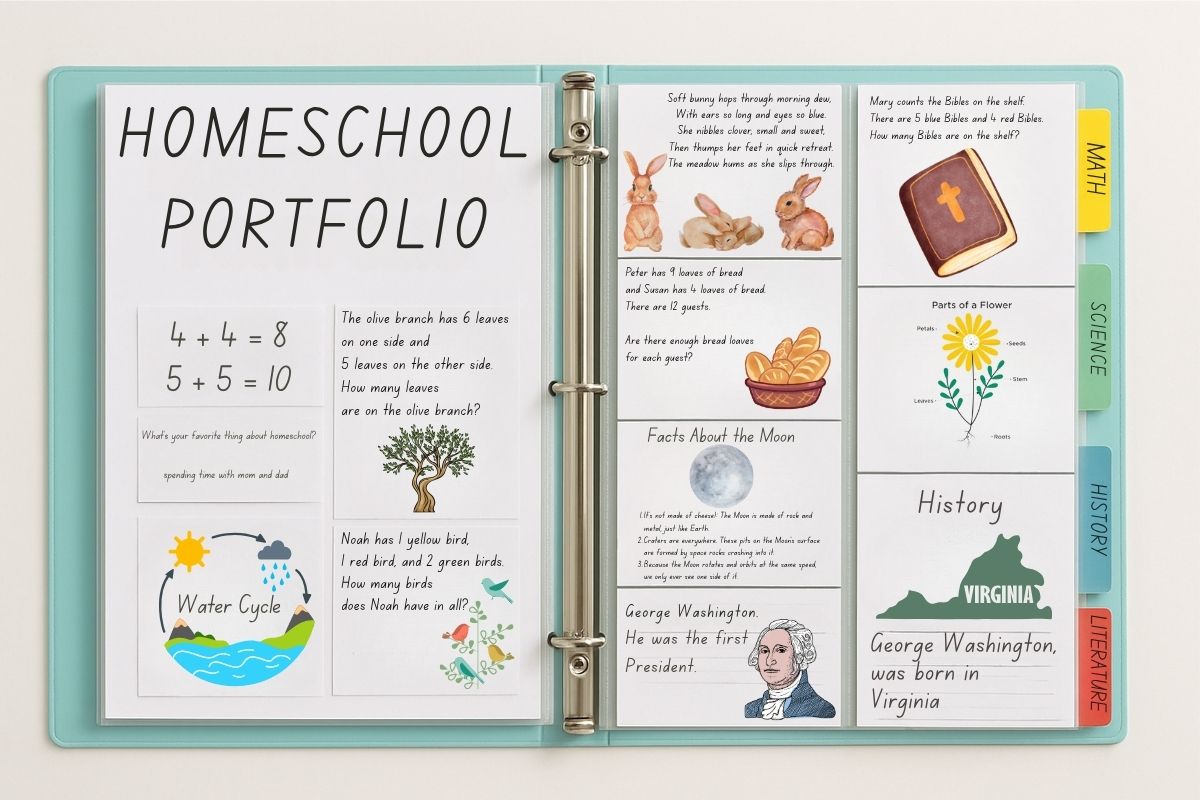 HOMESCHOOL
PORTFOLIO
4 + 4 = 8
5 + 5 = 10
What's your favorite thing about homeschool?
spending time with mom and dad
Water Cycle
The olive branch has 6 leaves
on one side and
5 leaves on the other side.
How many leaves
are on the olive branch?
Noah has 1 yellow bird,
1 red bird, and 2 green birds.
How many birds
does Noah have in all?
Soft bunny hops through morning dew,
With ears so long and eyes so blue.
She nibbles clover, small and sweet,
Then thumps her feet in quick retreat.
The meadow hums as she slips through.
Peter has 9 loaves of bread
and Susan has 4 loaves of bread.
There are 12 guests.
Are there enough bread loaves
for each guest?
Facts About the Moon
1. It's not made of cheese! The Moon is made of rock and
metal, just like Earth.
2. Craters are everywhere. These pits on the Moon's surface
are formed by space rocks crashing into it.
3. Because the Moon rotates and orbits at the same speed,
we only ever see one side of it.
George Washington.
He was the first
President.
Mary counts the Bibles on the shelf.
There are 5 blue Bibles and 4 red Bibles.
How many Bibles are on the shelf?
Parts of a Flower
Petals
Seeds
Stem
Leaves
Roots
History
VIRGINIA
George Washington,
was born in
Virginia
MATH
SCIENCE
HISTORY
LITERATURE